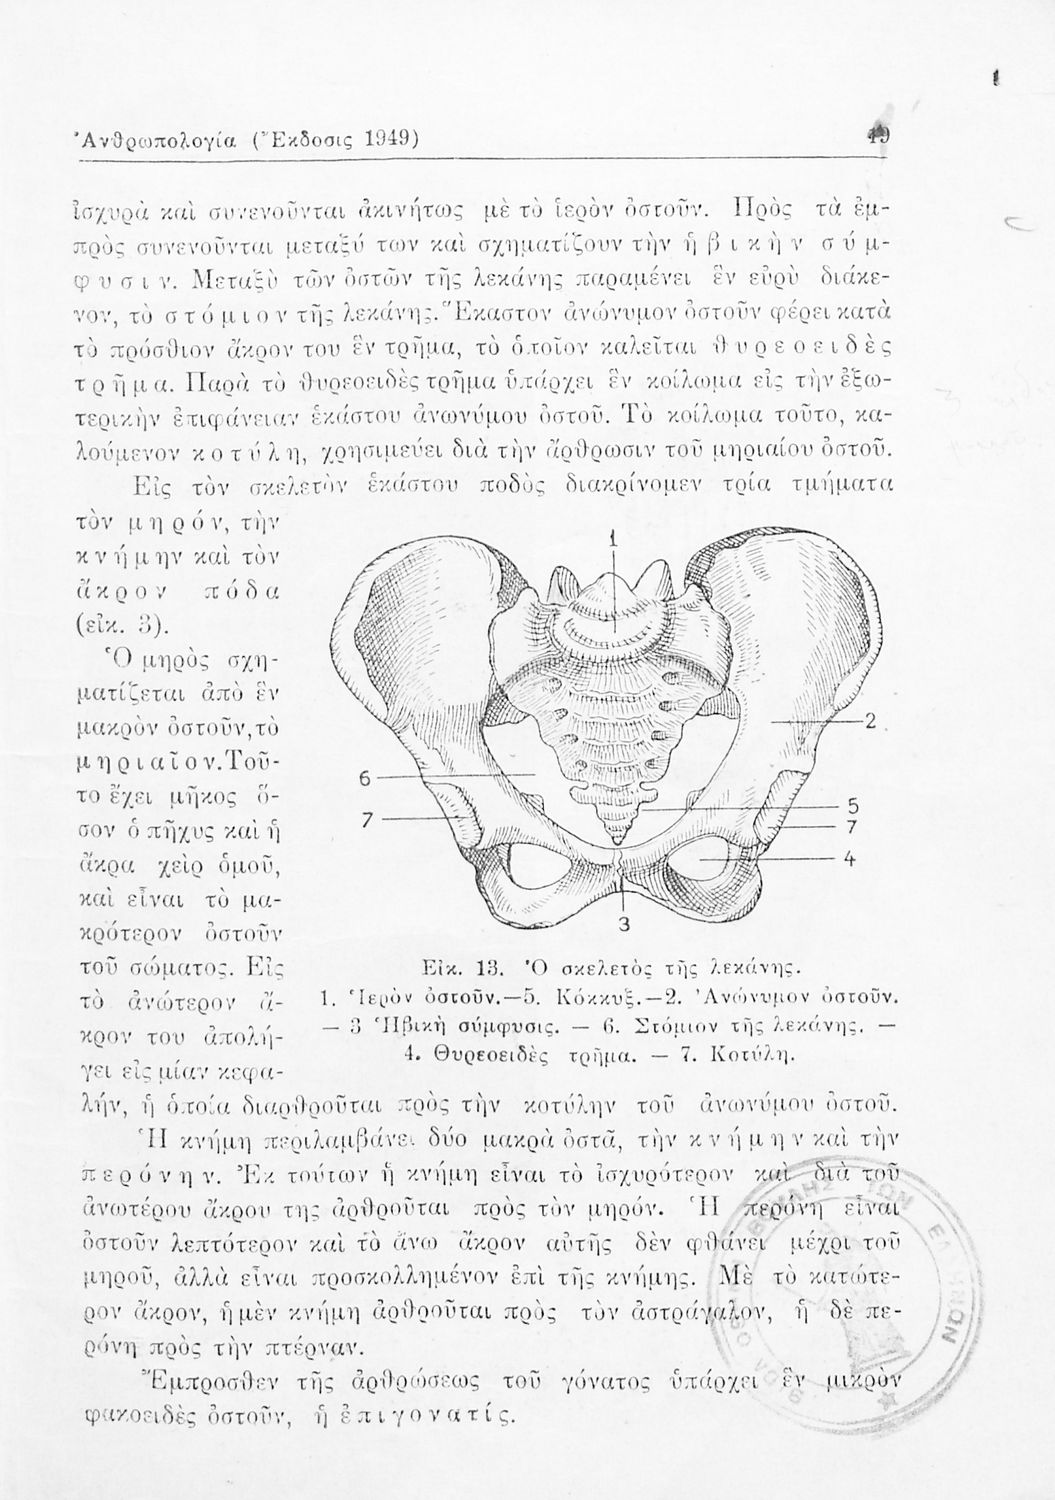 Ἀνθρωπολογία (Ἔκδοσις 1949)
49
ἰσχυρὰ καὶ συνενοῦνται ἀκινήτως μὲ τὸ ἱερὸν ὀστοῦν. Πρὸς τὰ ἐμ-
πρὸς συνενοῦνται μεταξύ των καὶ σχηματίζουν τὴν ἡβικὴν σύμ-
φυσιν. Μεταξὺ τῶν ὀστῶν τῆς λεκάνης παραμένει ἓν εὐρὺ διάκε-
νον, τὸ στόμιον τῆς λεκάνης. Ἕκαστον ἀνώνυμον ὀστοῦν φέρει κατὰ
τὸ πρόσθιον ἄκρον του ἓν τρῆμα, τὸ ὁποῖον καλεῖται θυρεοειδὲς
τρῆμα. Παρὰ τὸ θυρεοειδὲς τρῆμα ὑπάρχει ἓν κοίλωμα εἰς τὴν ἐξω-
τερικὴν ἐπιφάνειαν ἑκάστου ἀνωνύμου ὀστοῦ. Τὸ κοίλωμα τοῦτο, κα-
λούμενον κοτύλη, χρησιμεύει διὰ τὴν ἄρθρωσιν τοῦ μηριαίου ὀστοῦ.
Εἰς τὸν σκελετὸν ἑκάστου ποδὸς διακρίνομεν τρία τμήματα
τὸν μηρόν, τὴν
κνήμην καὶ τὸν
ἄκρον πόδα
(εἰκ. 3).
Ὁ μηρὸς σχη-
ματίζεται ἀπὸ ἓν
μακρὸν ὀστοῦν, τὸ
μηριαῖον. Τοῦ-
το ἔχει μῆκος ὅ-
σον ὁ πῆχυς καὶ ἡ
ἄκρα χεὶρ ὁμοῦ,
καὶ εἶναι τὸ μα-
κρότερον ὀστοῦν
τοῦ σώματος. Εἰς
τὸ ἀνώτερον ἄ-
κρον του ἀπολή-
γει εἰς μίαν κεφα-
1
2
6
5
7
7
4
3
Εἰκ. 13. Ὁ σκελετὸς τῆς λεκάνης.
1. Ἱερὸν ὀστοῦν.—5. Κόκκυξ.—2. Ἀνώνυμον ὀστοῦν.
— 3 Ἡβικὴ σύμφυσις. — 6. Στόμιον τῆς λεκάνης. —
4. Θυρεοειδὲς τρῆμα. — 7. Κοτύλη.
λήν, ἡ ὁποία διαρθροῦται πρὸς τὴν κοτύλην τοῦ ἀνωνύμου ὀστοῦ.
Ἡ κνήμη περιλαμβάνει δύο μακρὰ ὀστᾶ, τὴν κνήμην καὶ τὴν
περόνην. Ἐκ τούτων ἡ κνήμη εἶναι τὸ ἰσχυρότερον καὶ διὰ τοῦ
ἀνωτέρου ἄκρου της ἀρθροῦται πρὸς τὸν μηρόν. Ἡ περόνη εἶναι
ὀστοῦν λεπτότερον καὶ τὸ ἄνω ἄκρον αὐτῆς δὲν φθάνει μέχρι τοῦ
μηροῦ, ἀλλὰ εἶναι προσκολλημένον ἐπὶ τῆς κνήμης. Μὲ τὸ κατώτε-
ρον ἄκρον, ἡ μὲν κνήμη ἀρθροῦται πρὸς τὸν ἀστράγαλον, ἡ δὲ πε-
ρόνη πρὸς τὴν πτέρναν.
Ἔμπροσθεν τῆς ἀρθρώσεως τοῦ γόνατος ὑπάρχει ἓν μικρὸν
φακοειδὲς ὀστοῦν, ἡ ἐπιγονατίς.
ΒΟΥΛΗΣ ΤΩΝ ΕΛΛΗΝΩΝ